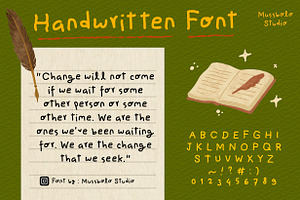 Handwritten Font
Mussbalo
Studio
"Change will not come
if we wait for some
other person or some
other time. We are the
ones we've been waiting
for. We are the change
that we seek."
Font by : Mussbalo Studio
ABCDEFGHI
JKLMNOPQR
STUVWXYZ
~!?#:)
0123456789